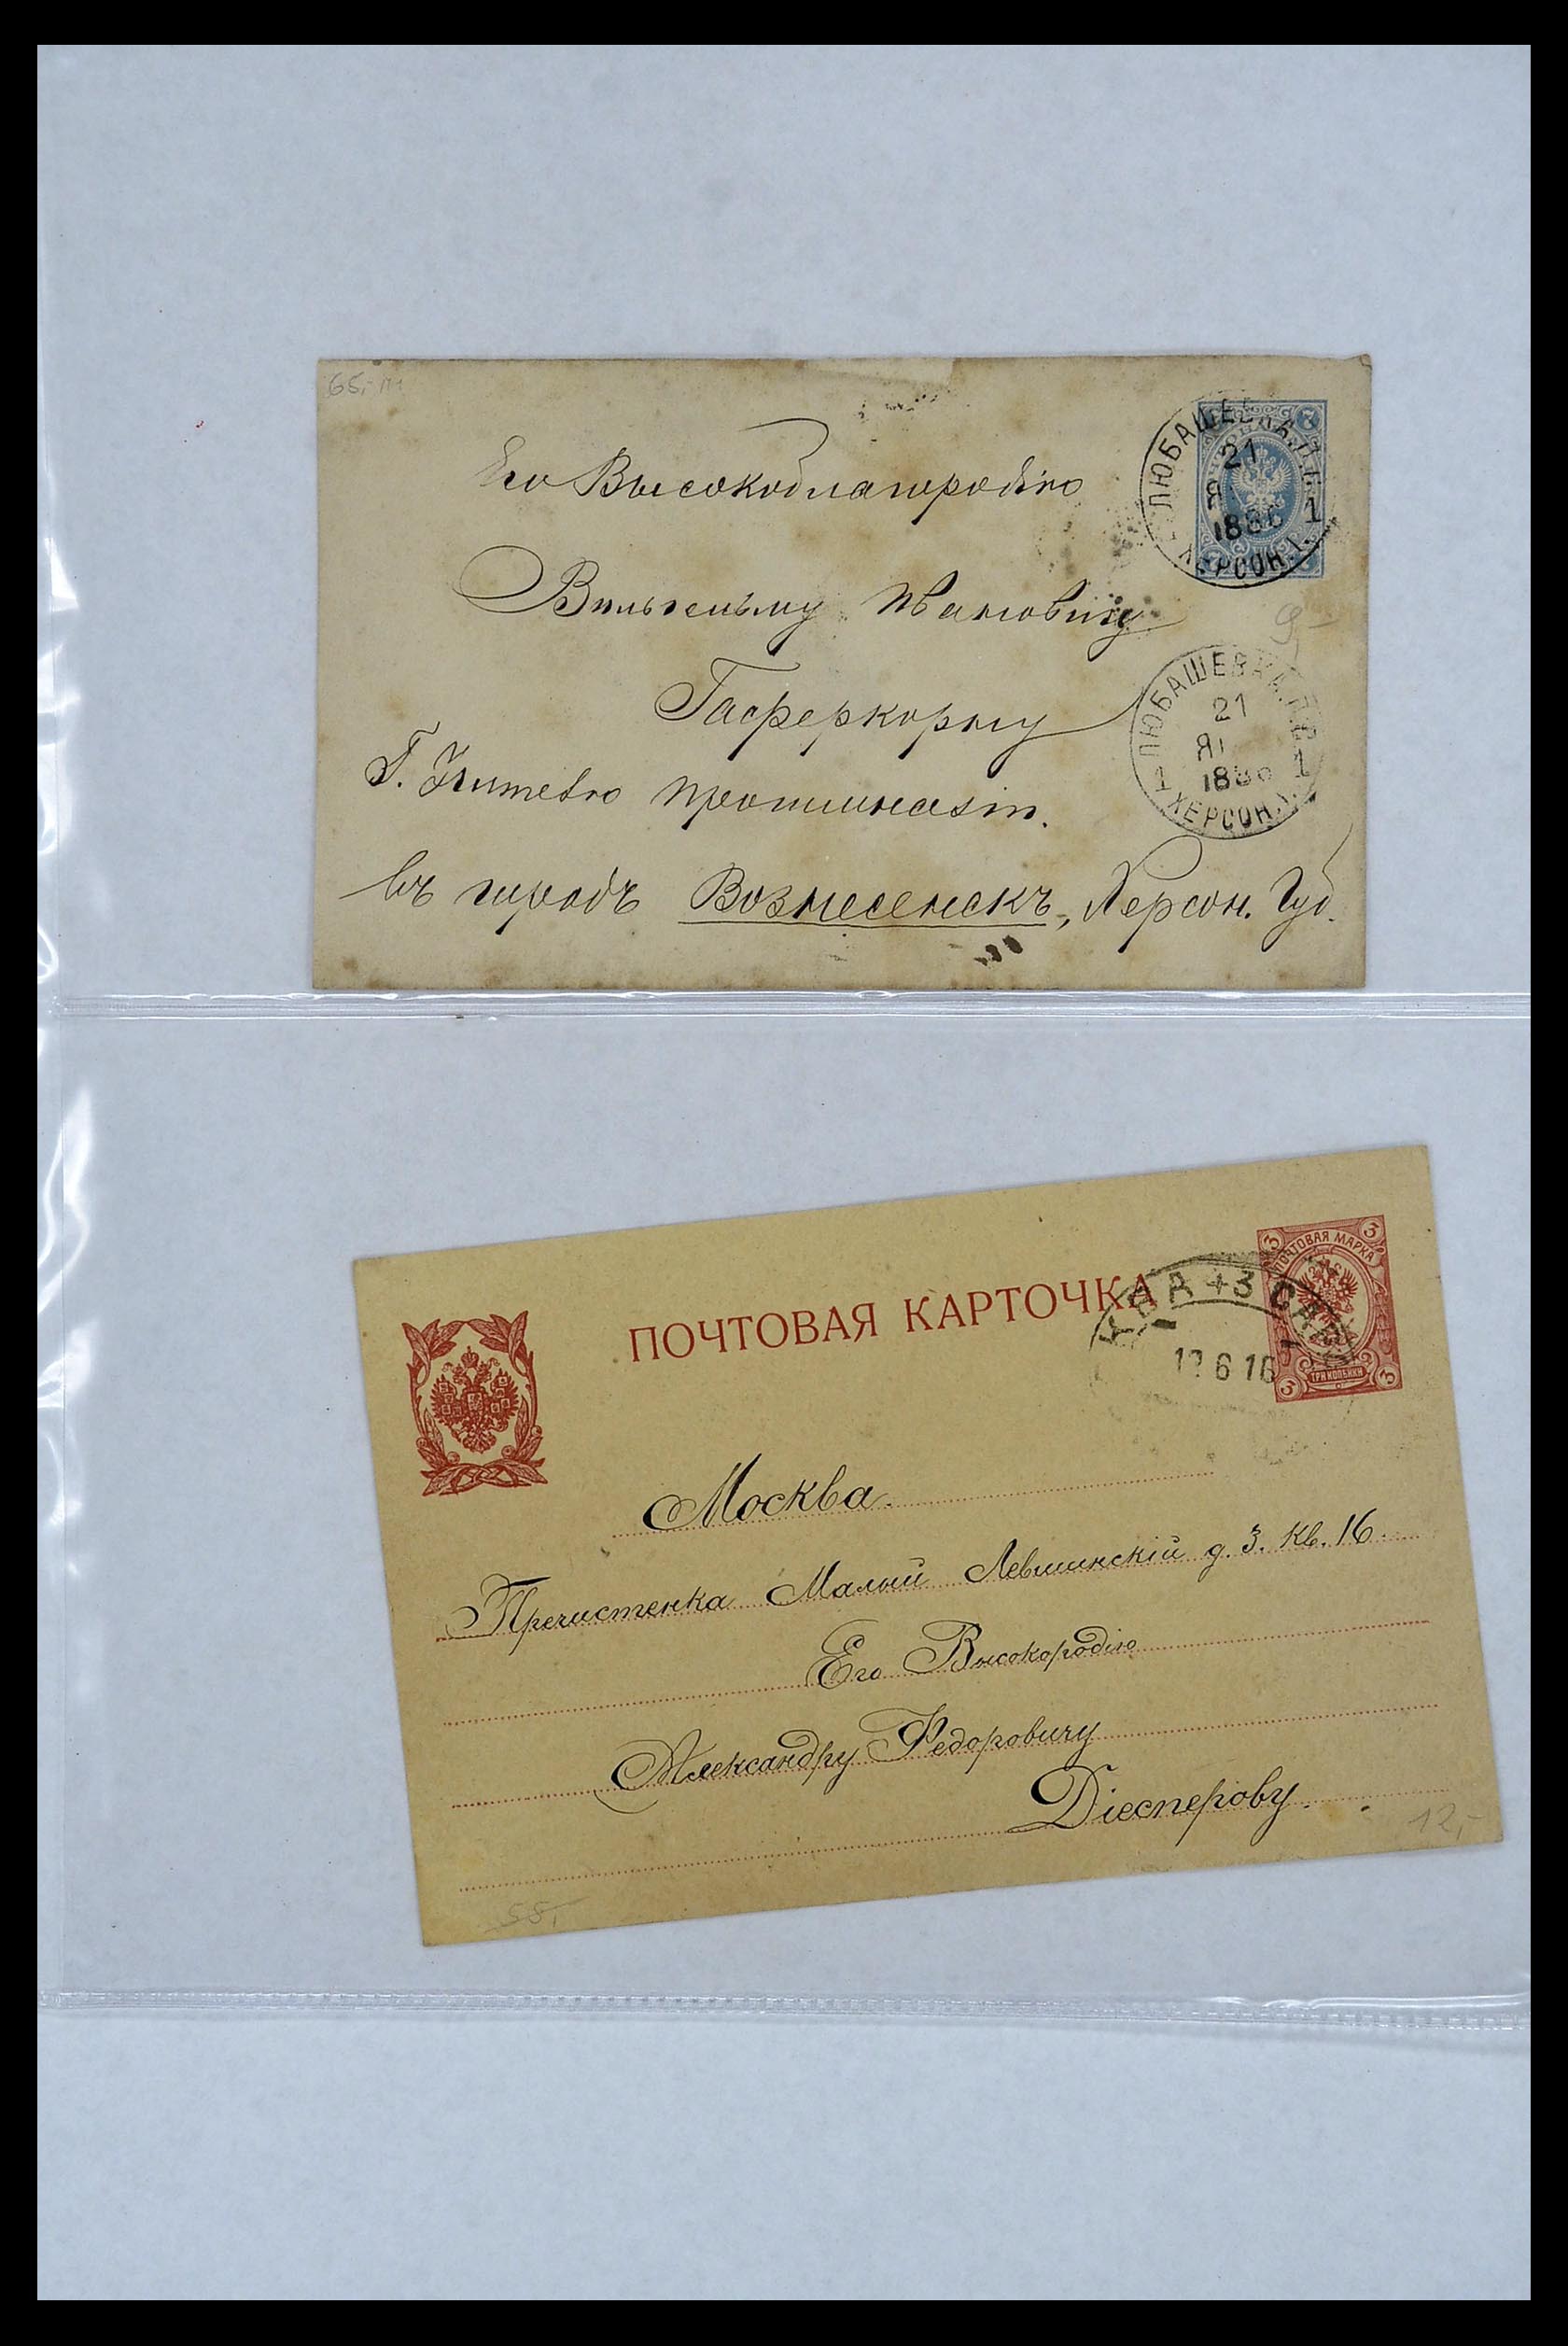 65,-
Его Высокоблагородію
Вильгельму Ивановичу
Гаферкорну
Г. Учителю прогимназіи.
въ городъ Вознесенскъ, Херсон. Губ.
ЛЮБАШЕВКА.
21
1886 1
ХЕРСОН.Г.
7
9,-
ЛЮБАШЕВКА.П.
21
1 1886 1
ХЕРСОН.Г.
ПОЧТОВАЯ КАРТОЧКА
ПОЧТОВАЯ МАРКА
3 3
ТРИ КОПѢЙКИ
3 3
6 16
Москва.
Пречистенка Малый Левшинскій д. 3. кв. 16.
Его Высокородію
Александру Федоровичу
Діесперову.
12,-
58,-